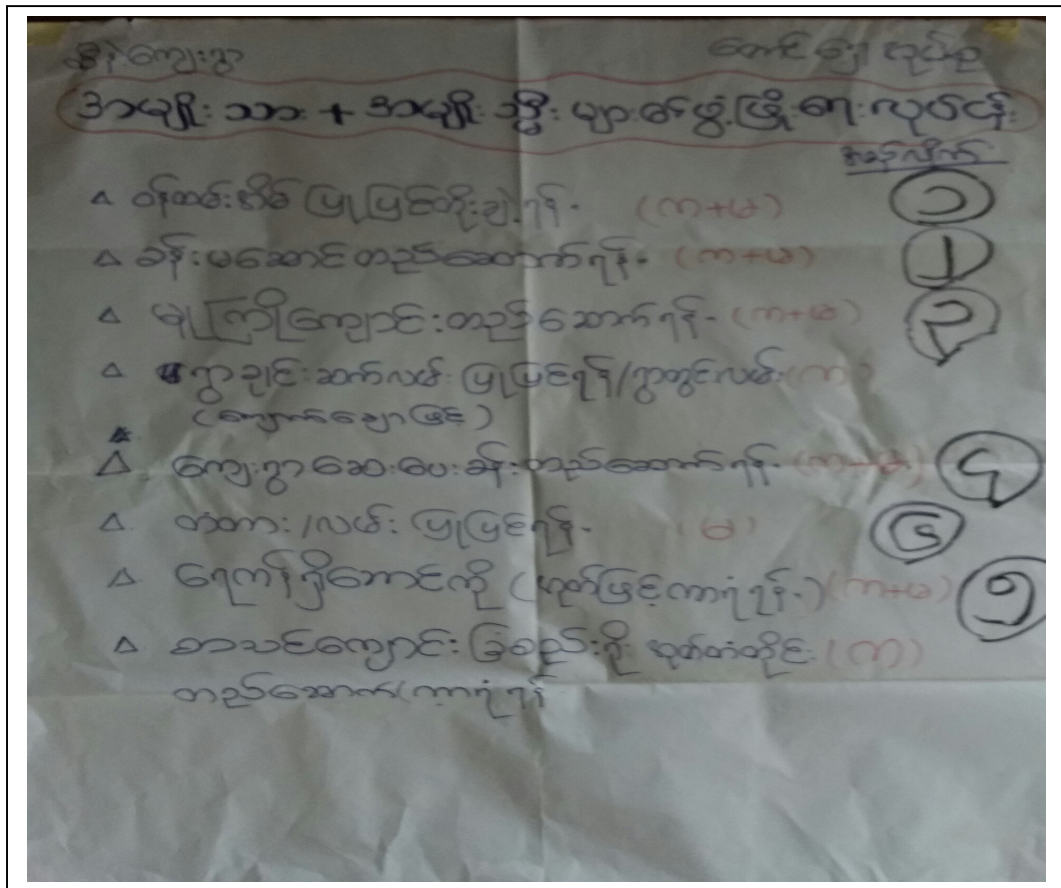 ကျေးရွာ
အမျိုးသား + အမျိုးသ္မီး များ၏ဖွံ့ဖြိုးရေးလုပ်ငန်း
△ ဝန်ထမ်းအိမ် ပြုပြင်တိုးချဲ့ရန်- (က+မ) ၁
△ ခန်းမဆောင်တည်ဆောက်ရန်- (က+မ)
△ မူကြိုကျောင်းတည်ဆောက်ရန်- (က+မ) ၃
△ ရွာချင်းဆက်လမ်းပြုပြင်ရန်/ရွာတွင်းလမ်း (က)
(ကျောက်ချောဖြင့်)
△ ကျေးရွာဆေးပေးခန်းတည်ဆောက်ရန်- ၄
△ တံတား/လမ်းပြုပြင်ရန်- (မ) ၆
△ ရေကန်ရှိဘောင်ကို (အုတ်ဖြင့်ကာရံရန်-) (က+မ) ၅
△ စာသင်ကျောင်းခြံစည်းရိုး အုတ်တံတိုင်း (က)
တည်ဆောက်/ကာရံရန်